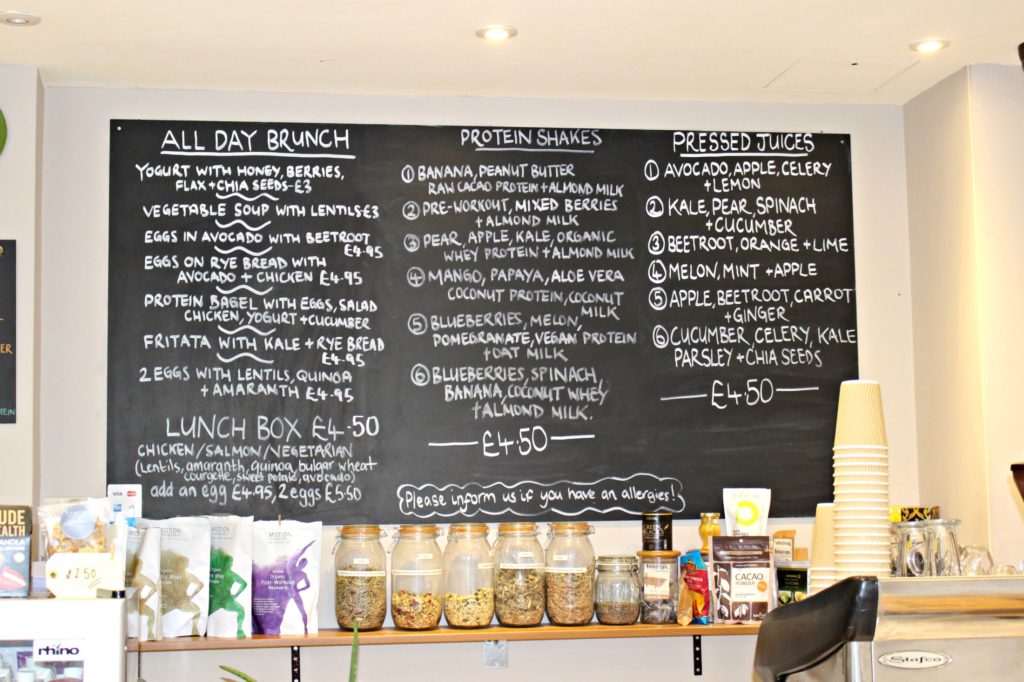 ALL DAY BRUNCH
YOGURT WITH HONEY, BERRIES,
FLAX + CHIA SEEDS-£3
VEGETABLE SOUP WITH LENTILS-£3
EGGS IN AVOCADO WITH BEETROOT
£4.95
EGGS ON RYE BREAD WITH
AVOCADO + CHICKEN £4.95
PROTEIN BAGEL WITH EGGS, SALAD
CHICKEN, YOGURT + CUCUMBER
FRITATA WITH KALE + RYE BREAD
£4.95
2 EGGS WITH LENTILS, QUINOA
+ AMARANTH £4.95
LUNCH BOX £4.50
CHICKEN/SALMON/VEGETARIAN
(Lentils, amaranth, quinoa, bulgar wheat
courgette, sweet potato, avocado)
add an egg £4.95, 2 eggs £5.50
PROTEIN SHAKES
① BANANA, PEANUT BUTTER
RAW CACAO PROTEIN + ALMOND MILK
② PRE-WORKOUT, MIXED BERRIES
+ ALMOND MILK
③ PEAR, APPLE, KALE, ORGANIC
WHEY PROTEIN + ALMOND MILK
④ MANGO, PAPAYA, ALOE VERA
COCONUT PROTEIN, COCONUT
MILK
⑤ BLUEBERRIES, MELON,
POMEGRANATE, VEGAN PROTEIN
+ OAT MILK
⑥ BLUEBERRIES, SPINACH,
BANANA, COCONUT WHEY
+ ALMOND MILK.
£4.50
PRESSED JUICES
① AVOCADO, APPLE, CELERY
+ LEMON
② KALE, PEAR, SPINACH
+ CUCUMBER
③ BEETROOT, ORANGE + LIME
④ MELON, MINT + APPLE
⑤ APPLE, BEETROOT, CARROT
+ GINGER
⑥ CUCUMBER, CELERY, KALE
PARSLEY + CHIA SEEDS
£4.50
Please inform us if you have an allergies!
VISA
£2.50
MOTION
MOTION
MOTION
Post-Workout
Recovery
CACAO
POWDER
rhino
Stafco